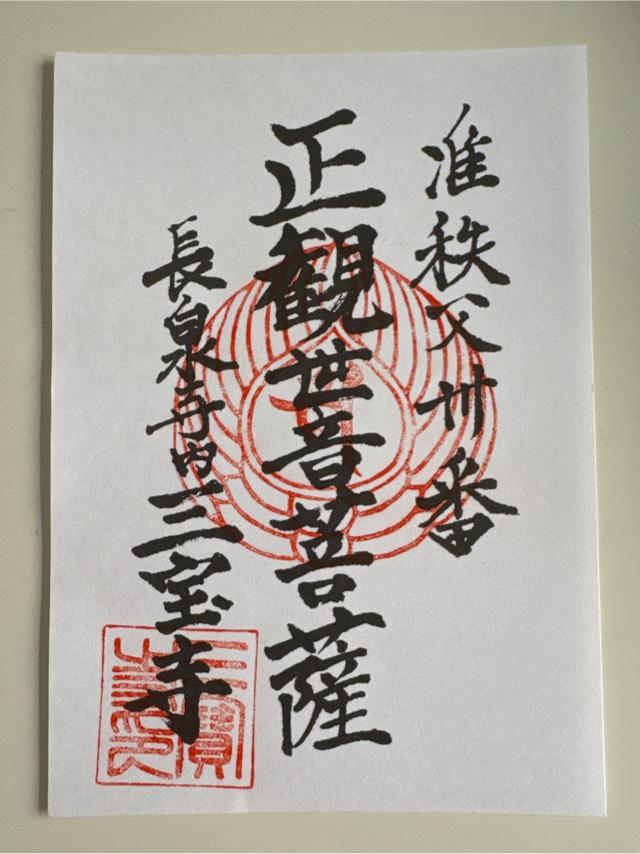 准秩父卅番
正観世音菩薩
長泉寺内三宝寺
三寶